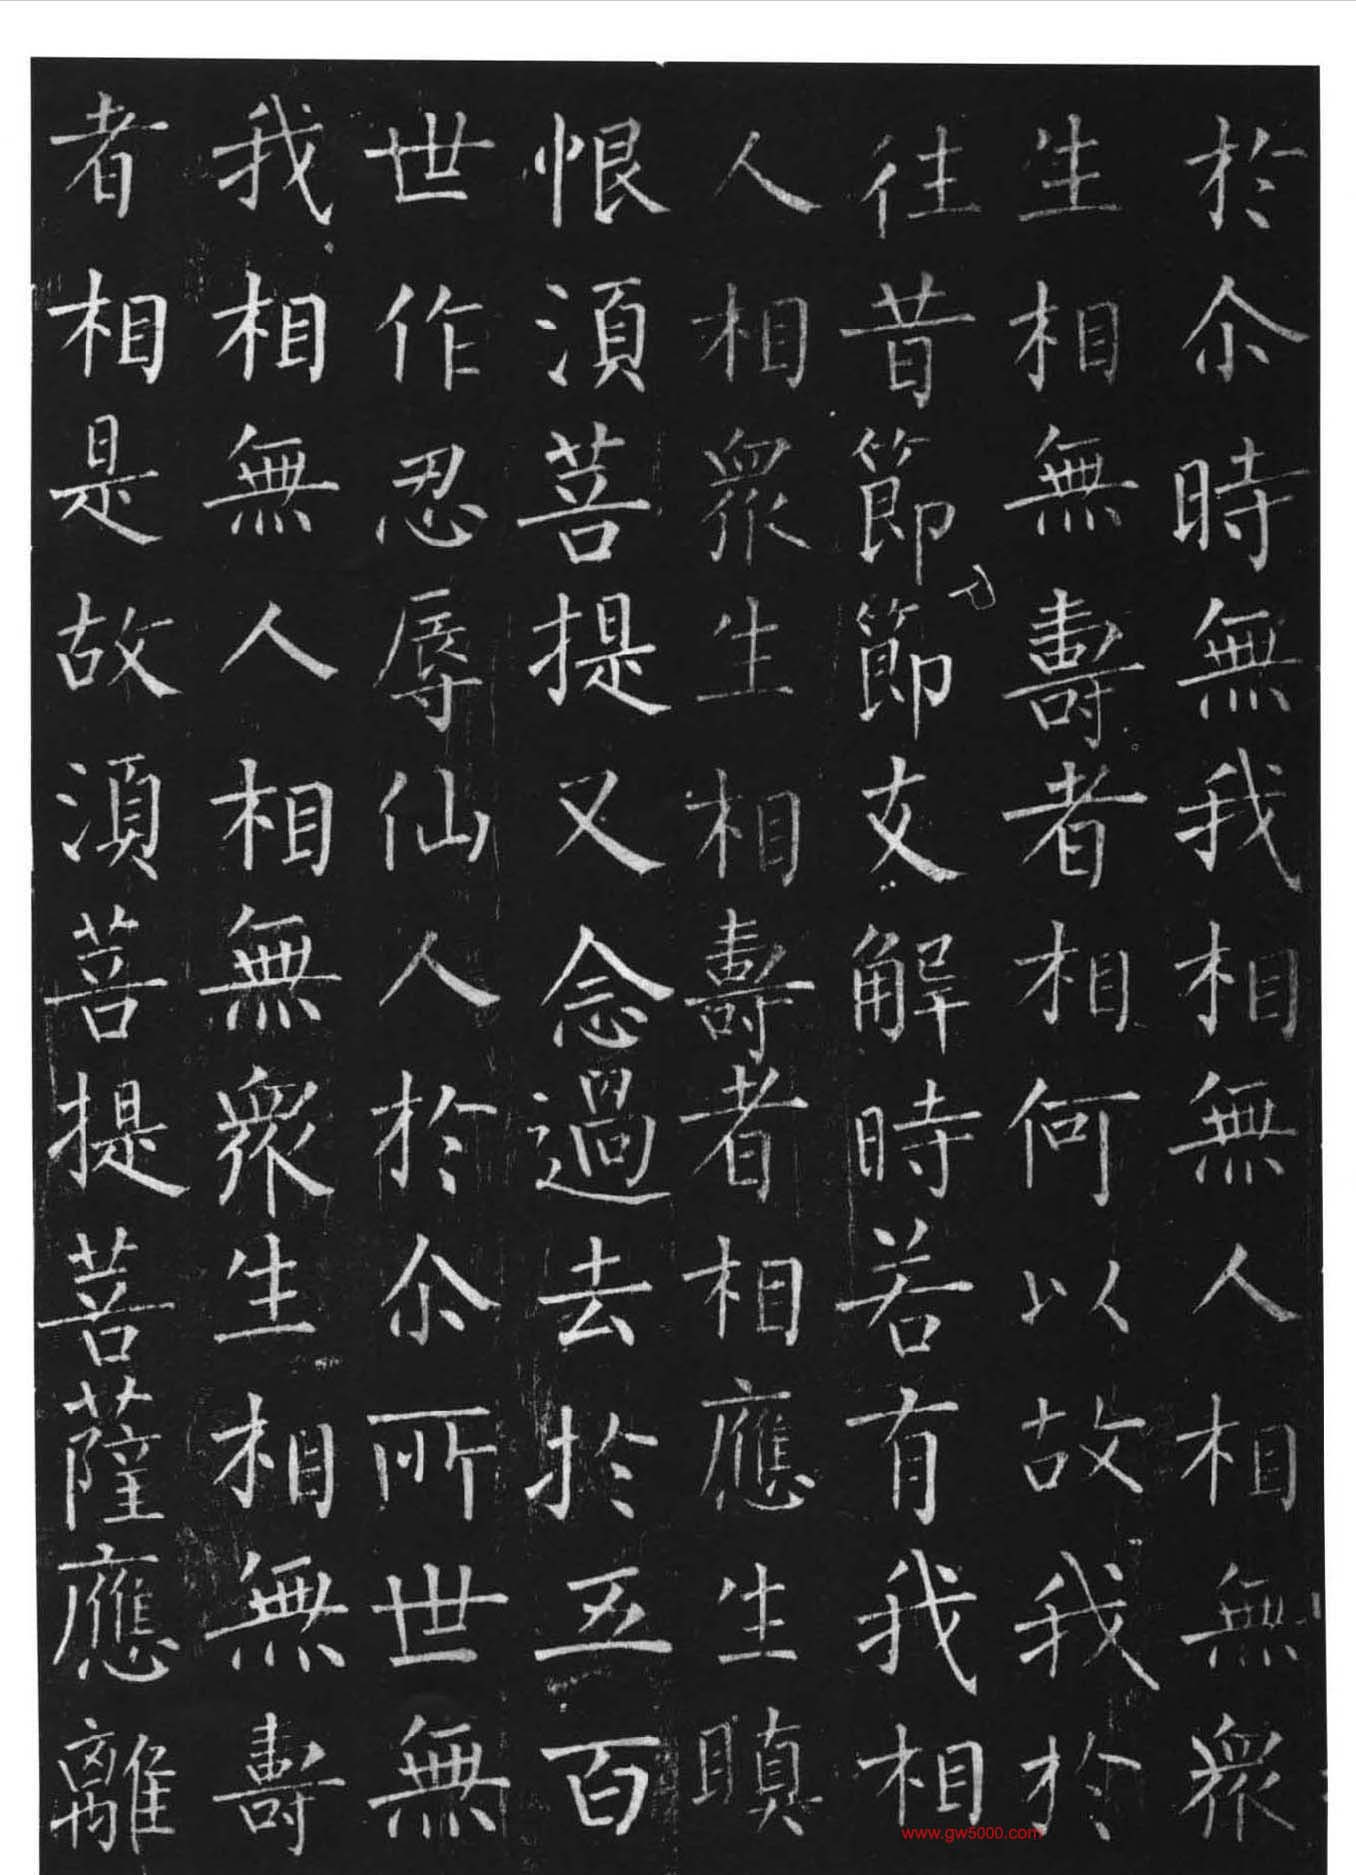 於尒時無我相無人相無衆
生相無壽者相何以故我於
往昔節節支解時若有我相
人相衆生相壽者相應生瞋
恨湏菩提又念過去於五百
世作忍辱仙人於尒所世無
我相無人相無衆生相無壽
者相是故湏菩提菩薩應離
www.gw5000.com